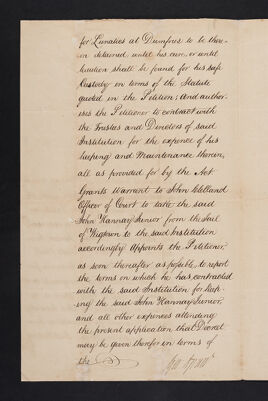 for Lunatics at Dumfries to be there-
in detained until his cure, or until
Caution shall be found for his safe
Custody in terms of the Statute
quoted in the Petition; And author-
ises the Petitioner to contract with
the Trustees and Directors of said
Institution for the expense of his
keeping and Maintenance therein,
all as provided for by the Act
Grants Warrant to John
Officer of Court to take the said
John Hannay Junior from the Jail
of Wigtown to the said Institution
accordingly Appoints the Petitioner,
as soon thereafter as possible, to report
the terms on which he has contracted
with the said Institution for keep-
ing the said John Hannay Junior,
and all other expenses attending
the present application that Decree
may be given therefor in terms of
the